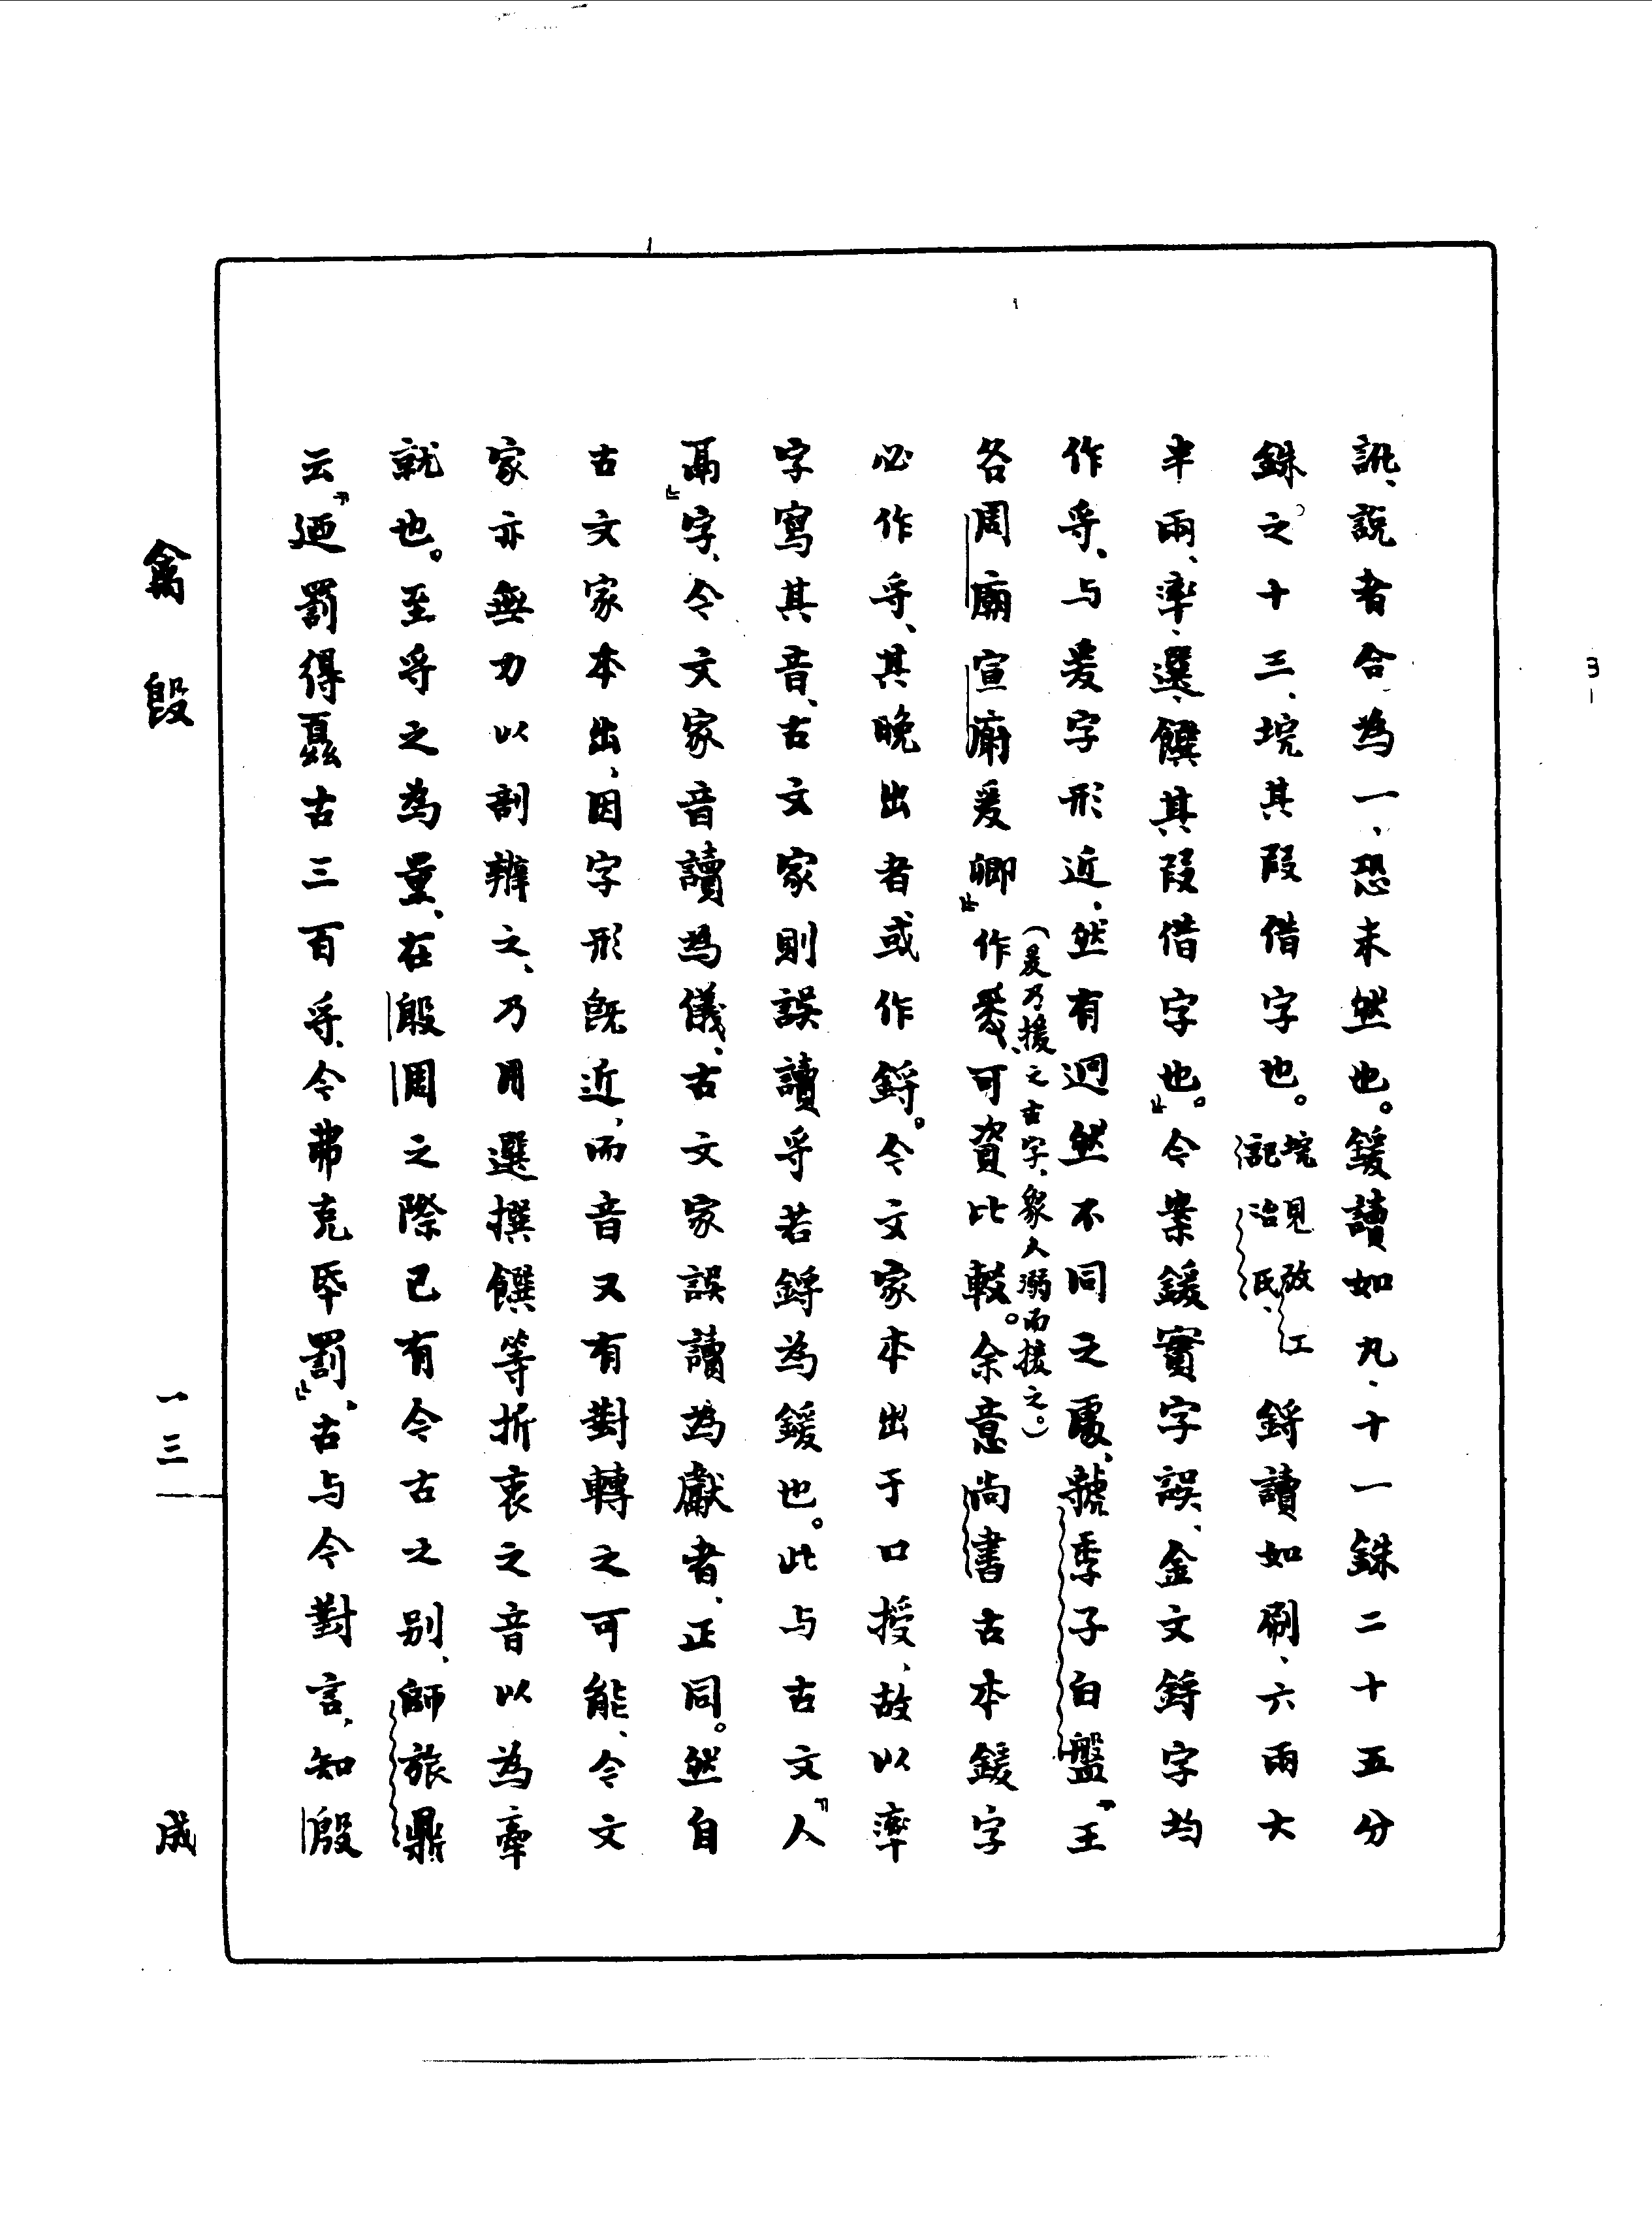 訛、說者合為一、恐未然也。鍰讀如丸、十一銖二十五分
銖之十三、垸其叚借字也。垸見攷工記冶氏、鋝讀如刷、六兩大
半兩、率、選、饌其叚借字也。』今案鍰實字誤、金文鋝字均
作寽、与爰字形近、然有迥然不同之處、虢季子白盤『王
各周廟宣廟爰卿』作
(爰乃援之古字、象人溺而援之。)
可資比較。余意尚書古本鍰字
必作寽、其晚出者或作鋝。今文家本出于口授、故以率
字寫其音、古文家則誤讀寽若鋝為鍰也。此与古文『人
鬲』字、今文家音讀為儀、古文家誤讀為獻者、正同。然自
古文家本出、因字形既近、而音又有對轉之可能、今文
家亦無力以剖辨之、乃用選撰饌等折衷之音以為牽
就也。至寽之為量、在殷周之際已有今古之別、師旅鼎
云『廼罰得𦅫古三百寽、今弗克氒罰』、古与今對言、知殷
禽𣪘
一三
成